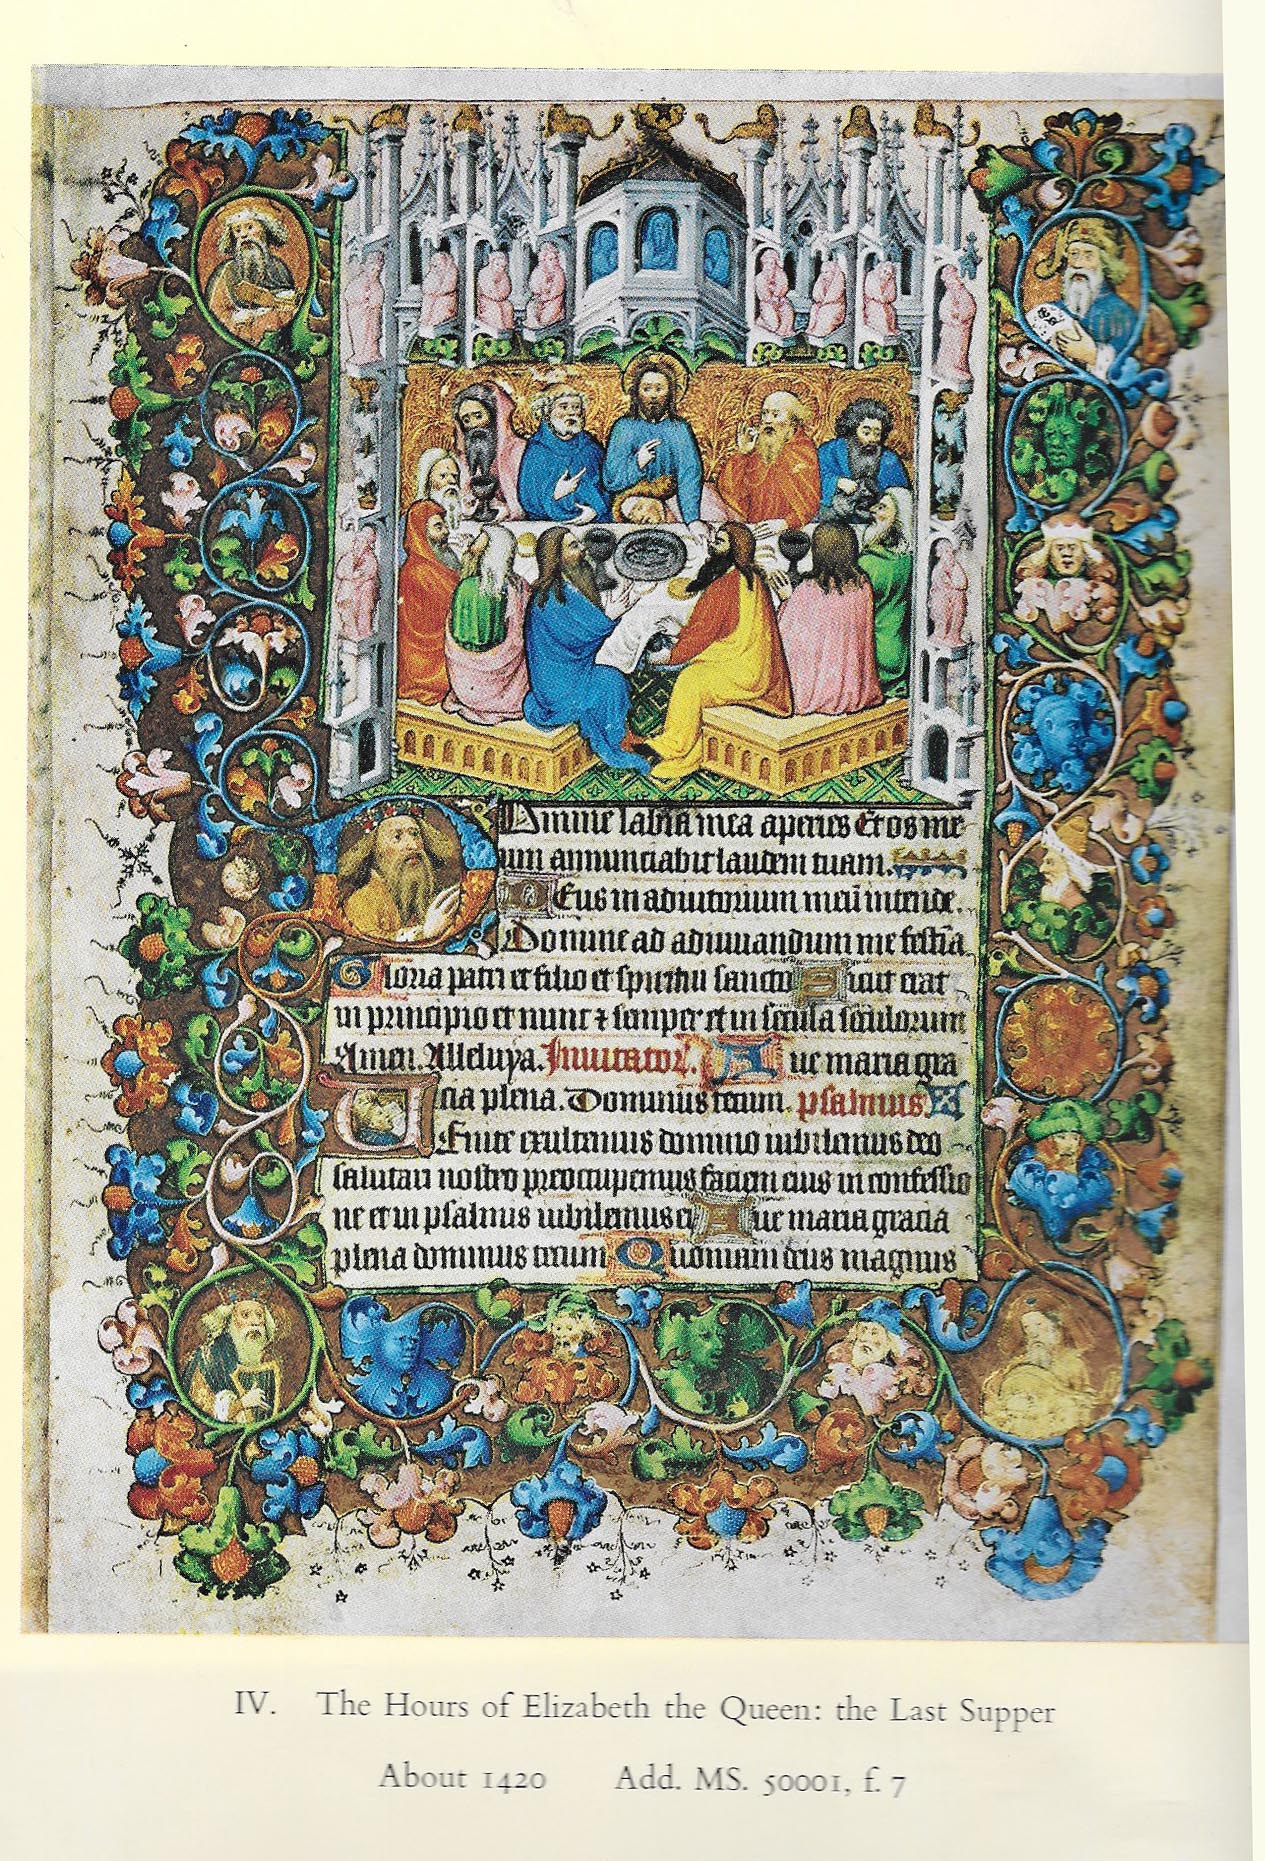 DOmine labia mea aperies Et os me
um annunciabit laudem tuam.
DEus in adiutorium meū intende.
Domine ad adiuuandum me festīa
Gloria patri et filio et spiritui sancto Sicut erat
in principio et nunc ⁊ semper et in secula seculorum
Amen. Alleluya. Inuitator. Aue maria gra
cia plena. Dominus tecum. psalmus.
VEnite exultemus domino iubilemus deo
salutari nostro preoccupemus faciem eius in confessio
ne et in psalmis iubilemus ei Aue maria gracia
plena dominus tecum Quoniam deus magnus
IV. The Hours of Elizabeth the Queen: the Last Supper
About 1420 Add. MS. 50001, f. 7